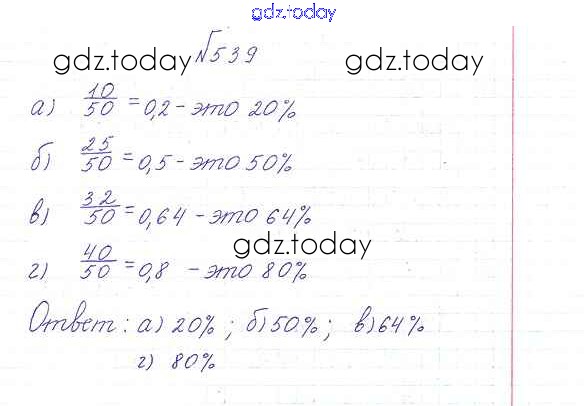 gdz.today
№539
gdz.today gdz.today
а) 10/50 = 0,2 - это 20%
б) 25/50 = 0,5 - это 50%
в) 32/50 = 0,64 - это 64%
gdz.today
г) 40/50 = 0,8 - это 80%
Ответ: а) 20% ; б) 50% ; в) 64%
г) 80%